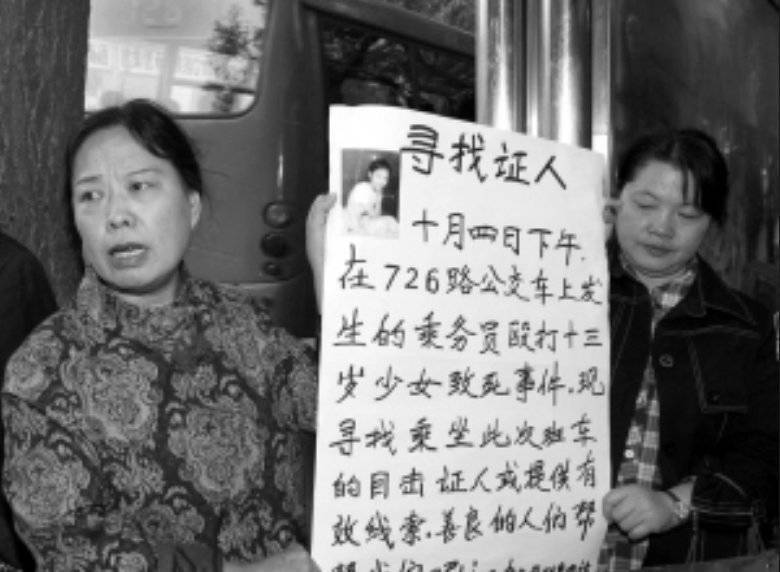 寻找证人
十月四日下午.
在726路公交车上发
生的乘务员殴打十三
岁少女致死事件.现
寻找乘坐此次班车
的目击证人或提供有
效线索.善良的人们帮